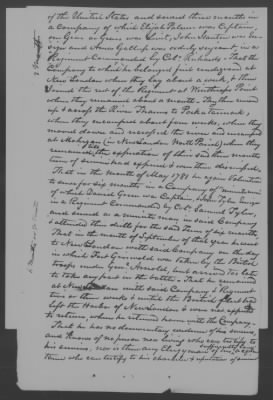 of the United States and served three months in
a Company of which Elijah Palmer was Captain,
Green was Lieut, John Stanton was En-
sign and Amos Gallup was orderly sergeant, in a
Regiment Commanded by Col. Richards - that the
Company to which he belonged first rendezvoused at
New London when they lay about a week, & then
joined the rest of the Regiment at Winthrops Point
when they remained about a month. They then moved
up & across the River Thames to Pocketannuck,
when they encamped about four weeks, when they
moved down and recrossed the river and encamped
at Mohegan (in New London North Parish) when they
remained till the expiration of their said three months
term of service had expired & were then discharged.
That in the month of May 1781 he again Volunteered
to serve for six months in a Company of minutemen
of which Daniel Green was Captain, John Tyler Ensign
in a Regiment Commanded by Col. Samuel Tyler,
and served as a minute man in said Company
& attended when called for the said term of six months
That in the month of September of that year he went
to New London with said Company on the day
in which Fort Griswold was taken by the British
troops under Genl Arnold, but arrived too late
to take any part in the battle - That he remained
at New London with said Company & Regiment
two or three weeks & until the British fleet had
left the Harbor of New London & was not expected
to return, when he returned home with the Company.
That he has no documentary evidence of his service,
and knows of no person now living who can testify to
his service, nor is there any Clergyman of his acquaintance
them who can certify to his character & reputation of service